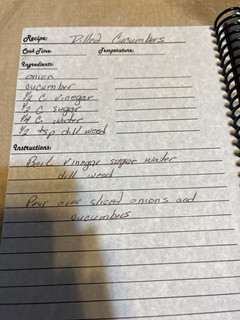 Recipe: Dilled Cucumbers
Cook Time: Temperature:
Ingredients:
onion
cucumber
1/2 C. vinegar
1/2 C sugar
1/4 C. water
1/2 tsp dill weed
Instructions:
Boil vinegar sugar water
dill weed
Pour over sliced onions and
cucumbers